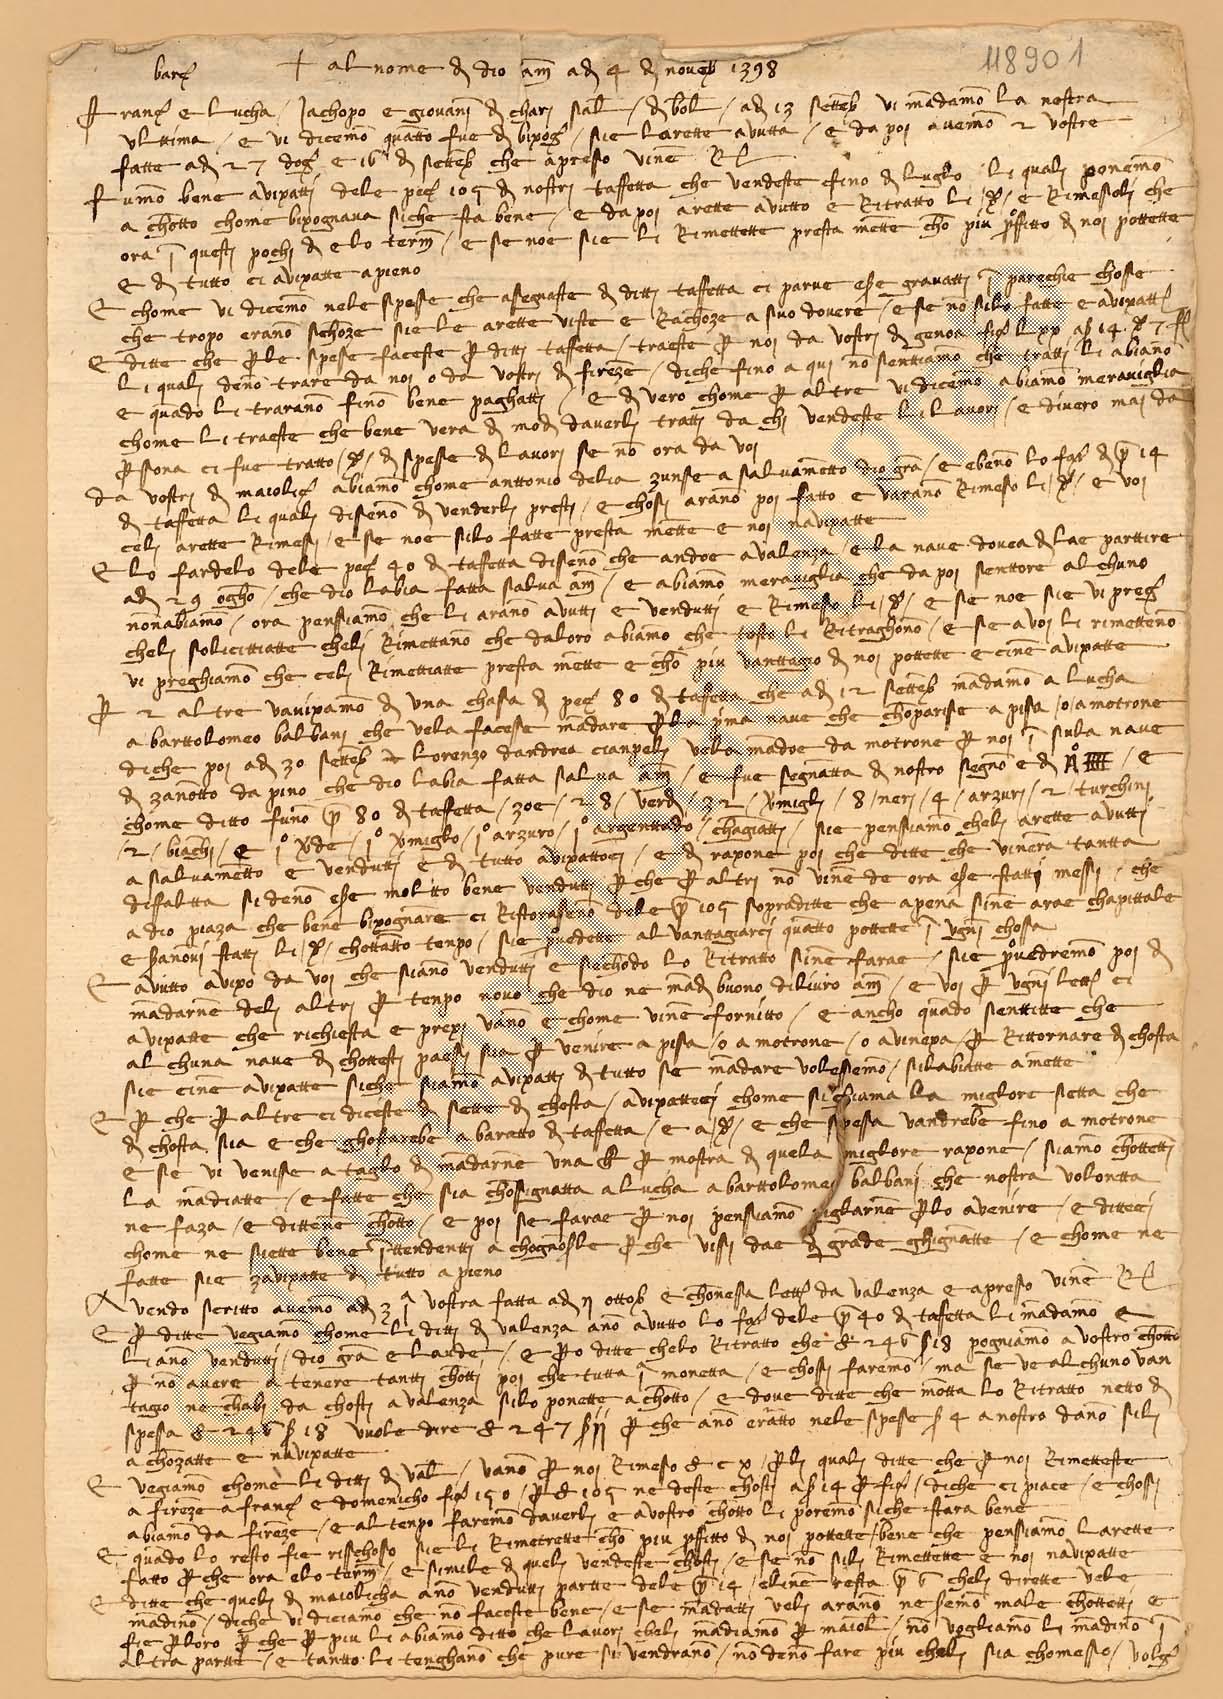 118901
barzᵃ + al nome di dio am̄ adi 4 di noueb 1398
Franzᵒ e Lucha / Jachopo e giovanj di charj sal / di bol / adi 13 setteb vi mādamō la nostra
vlttima / e vi dicemō quātto fue di bixogᵒ / sie larette avutta / e da poj avemō 2 vostre
fatte adi 27 dogᵒ e 16 di setteb che apresso vinē
Fumō bene avixattj dele peᶻ 105 di nostrj taffetta che vendeste fino di luglo li qualj ponemō
a chotto chome bixognava siche sta bene / e da poj arette avutto e Ritratto li / e Rimessolj che
ora ī questj pochj di elo term̄ / e se noe sie li Rimettette presta mētte chō piu ꝓffitto di noj pottette
e di tutto ci avixatte apieno
E chome vi dicemō nele spesse che asegnaste di dittj taffetta ci parue ese grauattj ī parechie chosse
che tropo eranō schoze sie le arette viste e Rachoze a suo dovere / e se nō silo fatte e avixattᵉ
E ditte che ꝑle spesse faceste ꝑ dittj taffetta / traeste ꝑ noj da vostrj di genoa
li qualj denō trare da noj o da vostrj di fireze / diche fino a quj nō senttiamō che trattj li abianō
e quādo li traranō finō bene paghattj / e di vero chome ꝑ altre vi dicemō abiamō meraviglia
chome li traeste che bene vera di modi dauerlj trattj da chj vendeste li lavorj / e divero maj da
ꝑssona ci fue tratto di spesse di lavorj se nō ora da voj
da vostrj di maiolicᵃ abiamō chome anttonio delia zunse a salvamētto dio gra / e ebenō lo fᵒ di pᶻ 14
di taffetta li qualj disenō di venderlj prestj / e chosj aranō poj fatto e varanō Rimesso li / e voj
celj arette Rimessj / e se noe silo fatte presta mētte e noj navixatte
E lo fardelo dele peᶻ 40 di taffetta disenō che andoe a valenza / e la nave dovea di lae parttire
adi 29 ogho / che dio labia fatta salua am̄ / e abiamō meraviglia che da poj senttore alchuno
nonabiamō / ora pensiamō che li aranō avuttj e venduttj e Rimesso li / e se noe sie vi pregᵒ
chelj solicittiatte chelj Rimettanō che daloro abiamō che tosto li Ritraghono / e se a voj li rimettenō
vi preghiamō che celj Rimettiatte presta mētte e chō piu vanttagio di noj pottette e cinē avixatte
ꝑ 2 altre vavixamō di una chassa di peᶻ 80 di taffetta che adi 12 setteb mādamō a Lucha
a barttolomeo balbanj che vela facesse mādare ꝑla pma nave che choparise a pissa / o a motrone
diche poj adi 30 setteb Lorenzo dandrea cianpelj vela mādoe da motrone ꝑ noj ī sula nave
di zanotto da pino che dio labia fatta salua am̄ / e fue segnatta di nostro segno e di / e
chome ditto funō pᶻ 80 di taffetta / zoe / 28 / verdj / 32 / vmiglj / 8 / nerj / 4 / arzurj / 2 / turchinj
/ 2 / biāchj / e 1ᵒ vde / 1ᵒ vmiglo / 1ᵒ arzuro / 1ᵒ argenttado / chagiattj / sie pensiamō chelj arette avuttj
a salvamētto e venduttj e di tutto avixattocj / e di raxone poj che ditte che vinēra tantta
diffaltta sidenō ese moltto bene venduttj ꝑ che ꝑ altrj nō vinē de ora ese stattj messj / che
a dio piaza che bene bixognare ci Ristorasenō dele pᶻ 105 sopraditte che apena sinē arae chapittale
e sanovi stattj li / chottātto tenpo / sie ꝓvedette al vanttagiarcj quātto pottette ī vgnj chossa
E avutto avixo da voj che sianō venduttj e sechōdo lo Ritratto sinē farae / sie ꝓvedremō poj di
mādarnē delj altrj ꝑ tenpo novo che dio ne mādj buono dilivro am̄ / e voj ꝑ vgnj lettᵃ ci
avixatte che richiesta e prexj vanō e chome vinē fornitto / e ancho quādo senttitte che
alchuna nave di chottestj paesj sia ꝑ venire a pissa / o a motrone / o a vinexa / ꝑ Rittornare di chosta
sie cinē avixatte siche siamō avixattj di tutto se mādare volessemō / silabiatte a mette
E ꝑ che ꝑ altre ci diceste di sette di chosta / avixattecj chome sichiama la miglore setta che
di chosta sia e che ghostarebe a baratto di taffetta / e a / e che spessa vandrebe fino a motrone
e se vi venisse a taglo di mādarnē vna ꝑ mostra di quela miglore raxone / siamō chottettj
la mādiatte / e fatte che sia chosignatta a Lucha a barttolomej balbanj che nostra volontta
ne faza / e dittenē chotto / e poj se farae ꝑ noj pensiamō piglarnē ꝑlo avenire / e dittecj
chome ne siette bene īttendenttj a chognosle ꝑ che vissj dae di grāde ghignatte / e chome ne
fatte sie zavixatte di tutto apieno
Avendo scritto avemō adi 3 1ᵃ vostra fatta adi 11 ottob e chonessa lettᵃ da valenza e apresso vinē
E ꝑ ditte vegiamō chome li dittj di valenza anō avutto lo fᵒ dele pᶻ 40 di taffetta li mādamō e
lianō venduttj / dio gra e laude / e ꝑo ditte chelo Ritratto che 246 18 pogniamō a vostro chotto
ꝑ nō avere a tenere tanttj chottj poj che tutta 1ᵃ monetta / e chossj faremō / ma se ve alchuno van
tagio ne chābj da chostj a valenza silo ponette a chotto / e dove ditte che mōtta lo Ritratto netto di
spessa 246 18 vuole dire 247 ꝑ che anō eratto nele spesse 4 a nostro danō silj
achōzatte e navixatte
E vegiamō chome li dittj di val / vanō ꝑ noj Rimesso cx / ꝑli qualj ditte che ꝑ noj Rimetteste
a fireze a franzᵒ e domenicho 150 / ꝑ 105 ne deste chostj a 14 ꝑ / diche ci piace / e chossj
abiamō da fireze / e al tenpo faremō dauerlj e a vostro chotto li poremō siche stara bene
E quādo lo resto fie rischosso sie li Rimettette chō piu ꝓffitto di noj pottette / bene che pensiamō larette
fatto ꝑ che ora elo term̄ / e simile di quelj vendeste chostj / e se nō silj Rimettette e noj navixatte
E ditte che quelj di maiolicha anō venduttj partte dele pᶻ 14 / elinē resta pᶻ 6 chelj dirette vele
mādinō / diche vi diciamō che nō faceste bene / e se mādattj velj aranō ne semō male chottettj e
fie ꝑloro ꝑ che ꝑ piu li abiamō ditto che lavorj chelj mādiamō ꝑ maiol / nō vogliamō li mādinō ī
altra partte / e tantto li tenghanō che pure si vendranō / nō denō fare piu chelj sia chomesso / volgᵉ